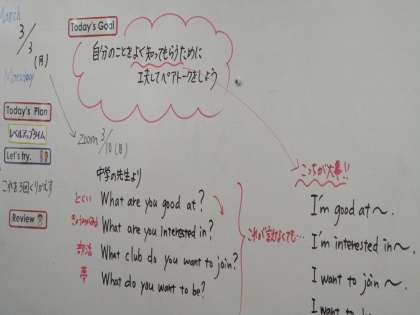 March
3/3
(月)
Monday
Today's Goal
自分のことをよく知ってもらうために
工夫してペアトークをしよう
Today's Plan
レベルアップタイム
Let's try.
これを3回くりかえす
Review
zoom 3/10(月)
中学の先生より
とくい What are you good at?
What are you interested in?
部活 What club do you want to join?
夢 What do you want to be?
これが言えなくても…
こっちが大事!!
I'm good at ~.
I'm interested in ~.
I want to join ~.
I want to be